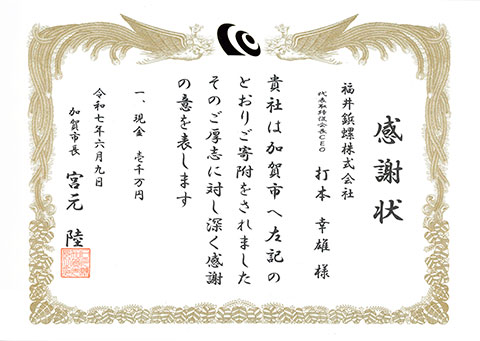 感謝状
福井鋲螺株式会社
代表取締役会長CEO
打本 幸雄 様
貴社は加賀市へ左記の
とおりご寄附をされました
そのご厚志に対し深く感謝
の意を表します
一、現金 壱千万円
令和七年六月九日
加賀市長 宮元 陸